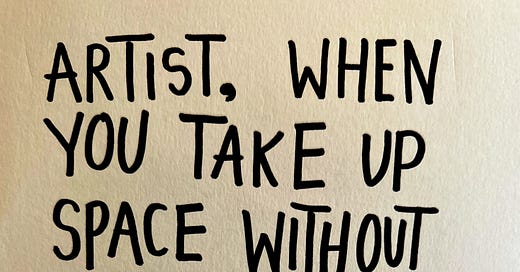 ARTIST, WHEN
YOU TAKE UP
SPACE WITHOUT